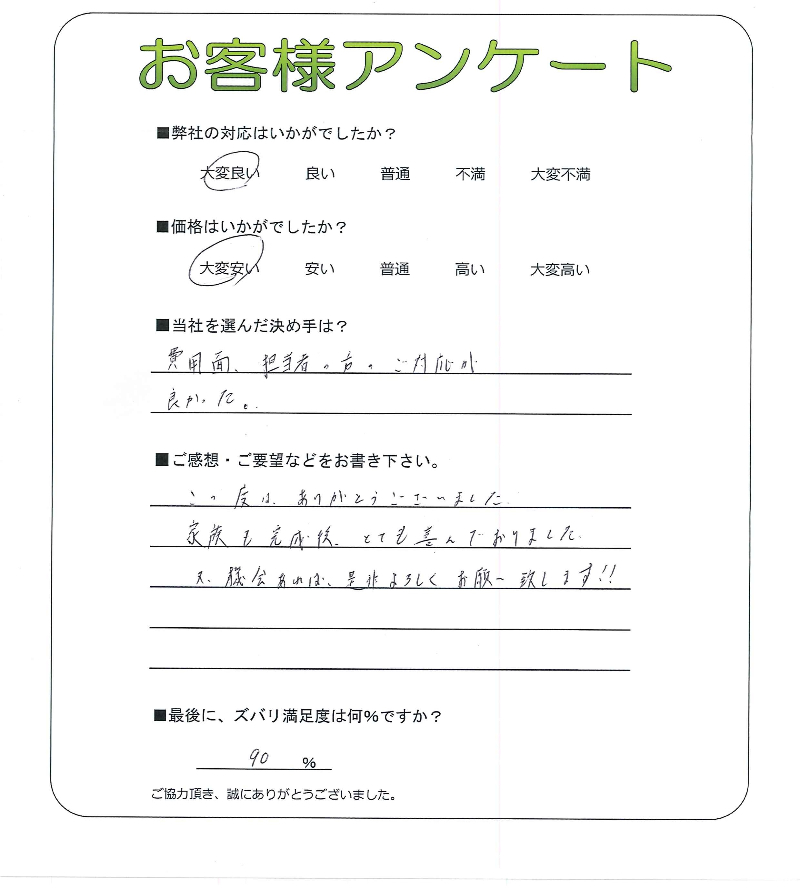 お客様アンケート
■弊社の対応はいかがでしたか？
大変良い 良い 普通 不満 大変不満
■価格はいかがでしたか？
大変安い 安い 普通 高い 大変高い
■当社を選んだ決め手は？
費用面、担当者の方のご対応が
良かった。
■ご感想・ご要望などをお書き下さい。
この度は、ありがとうございました。
家族も完成後、とても喜んでおりました。
又、機会あれば、是非よろしくお願い致します!!
■最後に、ズバリ満足度は何％ですか？
90 %
ご協力頂き、誠にありがとうございました。